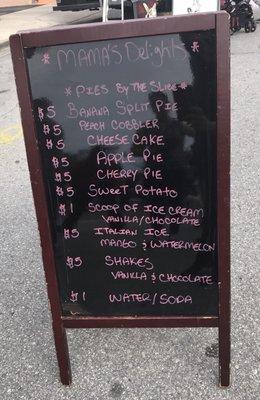 * MAMA'S Delights *
* PIES By THE SLICE *
$5 BANANA SPLIT PIE
$5 PEACH COBBLER
$5 CHEESE CAKE
$5 APPLE PIE
$5 CHERRY PIE
$5 SWEET POTATO
$1 SCOOP OF ICE CREAM
VANILLA/CHOCOLATE
$5 ITALIAN ICE
MANGO & WATERMELON
$5 SHAKES
VANILLA & CHOCOLATE
$1 WATER/SODA